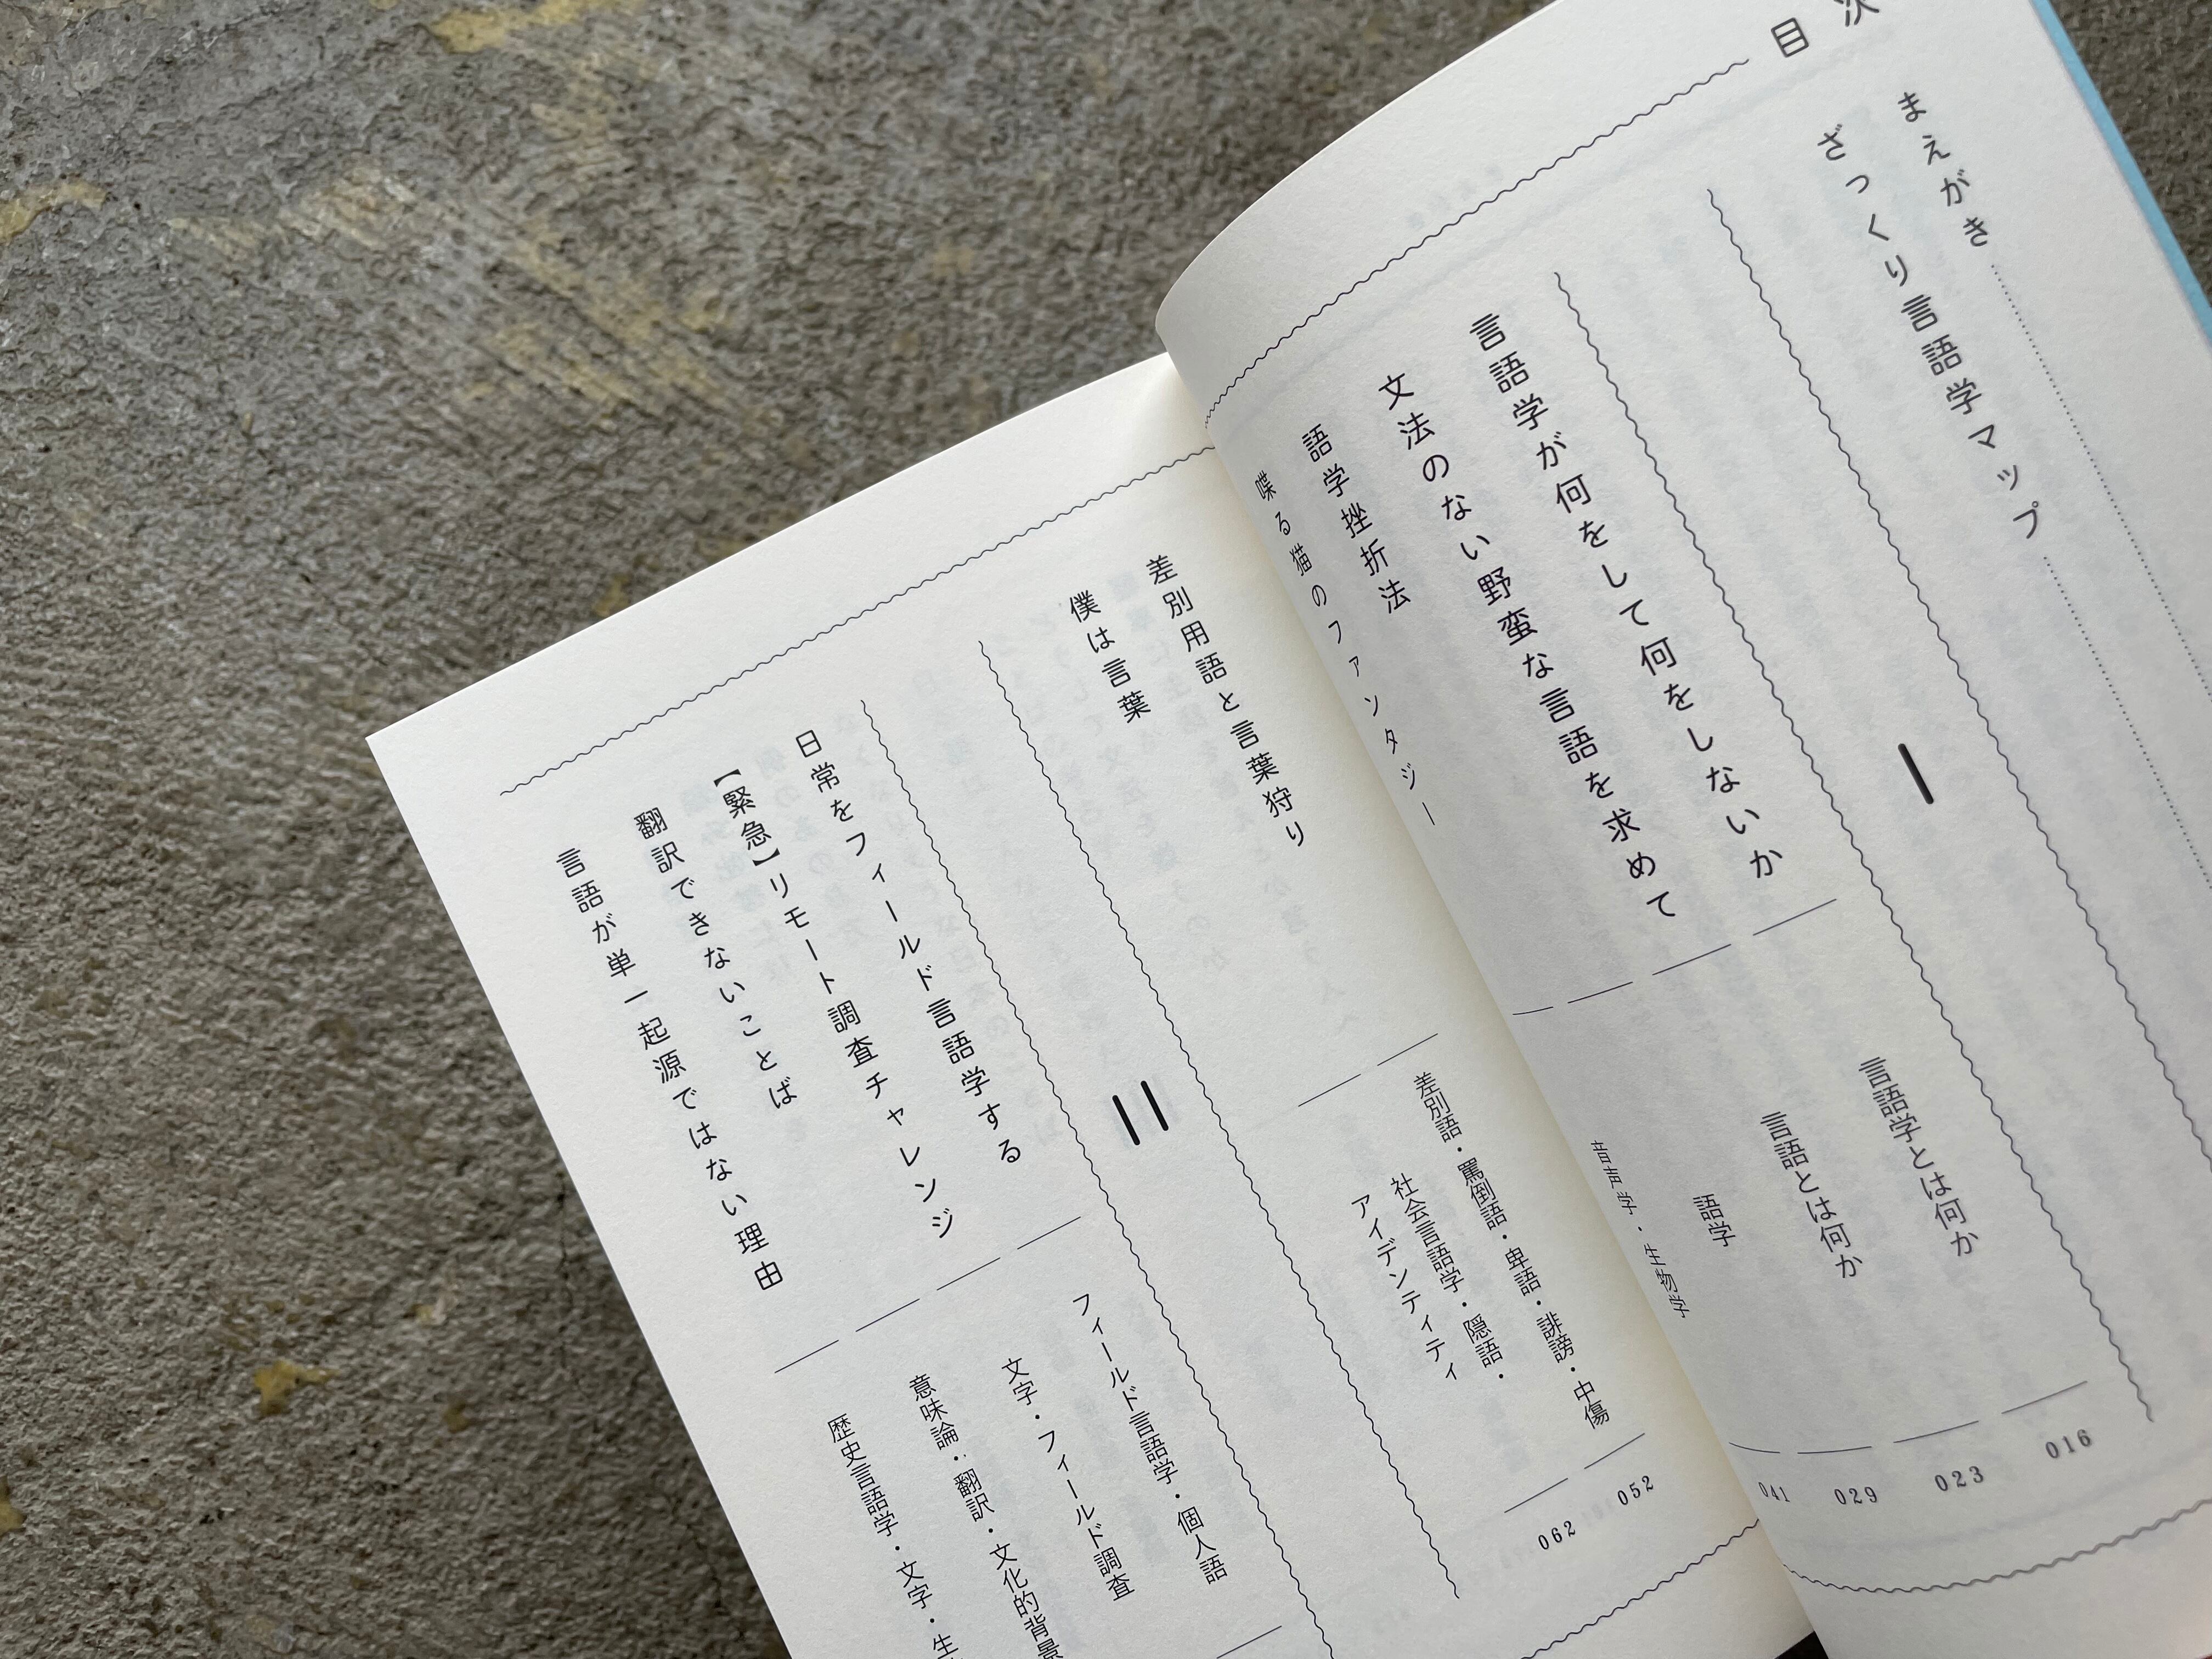 目次
まえがき
ざっくり言語学マップ
I
言語学が何をして何をしないか
言語学とは何か
016
文法のない野蛮な言語を求めて
言語とは何か
023
語学挫折法
語学
029
喋る猫のファンタジー
音声学・生物学
041
差別用語と言葉狩り
差別語・罵倒語・卑語・誹謗・中傷
052
僕は言葉
社会言語学・隠語・
アイデンティティ
062
II
日常をフィールド言語学する
フィールド言語学・個人語
【緊急】リモート調査チャレンジ
文字・フィールド調査
翻訳できないことば
意味論:翻訳・文化的背景
言語が単一起源ではない理由
歴史言語学・文字・生